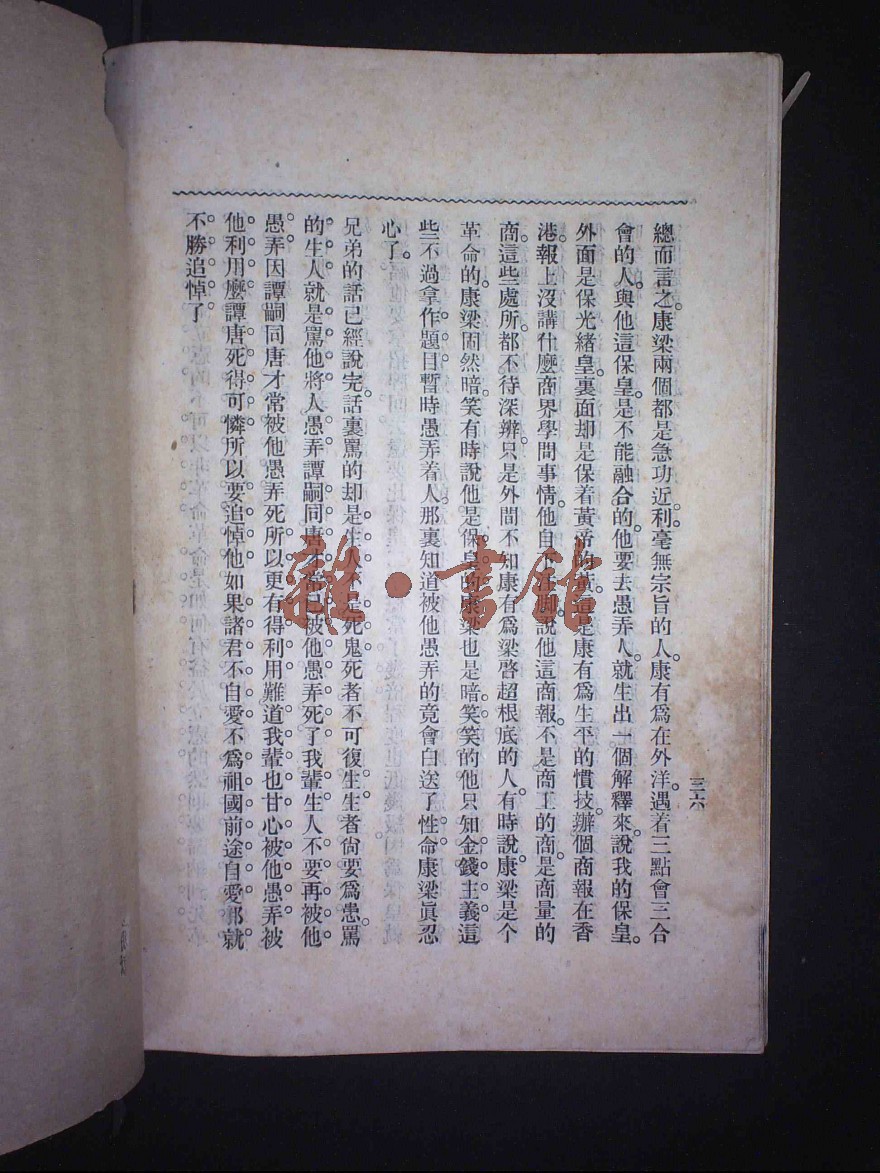 總而言之。康梁兩個都是急功近利。毫無宗旨的人。康有爲在外洋。遇着三點會三合
會的人。與他這保皇。是不能融合的。他要去愚弄人。就生出一個解釋來。說我的保皇。
外面是保光緒皇。裏面却是保着黃帝的黃。這是康有爲生平的慣技。辦個商報在香
港。報上沒講什麼商界學問事情。他自下注脚。說他這商報。不是商工的商。是商量的
商。這些處所。都不待深辨。只是外間不知康有爲梁啓超根底的人。有時說。康梁是个
革命的。康梁固然暗笑。有時說他是保皇的。康梁也是暗笑。笑的他只知金錢主義。這
些不過拿作題目。暫時愚弄着人。那裏知道被他愚弄的。竟會白送了性命。康梁眞忍
心了。
兄弟的話已經說完。話裏罵的却是生人不是死鬼。死者不可復生。生者尙要爲患。罵
的生人。就是罵他將人愚弄。譚嗣同唐才常已被他愚弄死了。我輩生人不要再被他
愚弄。因譚嗣同唐才常被他愚弄死。所以更有得利用。難道我輩也甘心被他愚弄被
他利用麼。譚唐死得可憐。所以要追悼他。如果諸君不自愛。不爲祖國前途自愛。那就
不勝追悼了。
三六
雜·書館